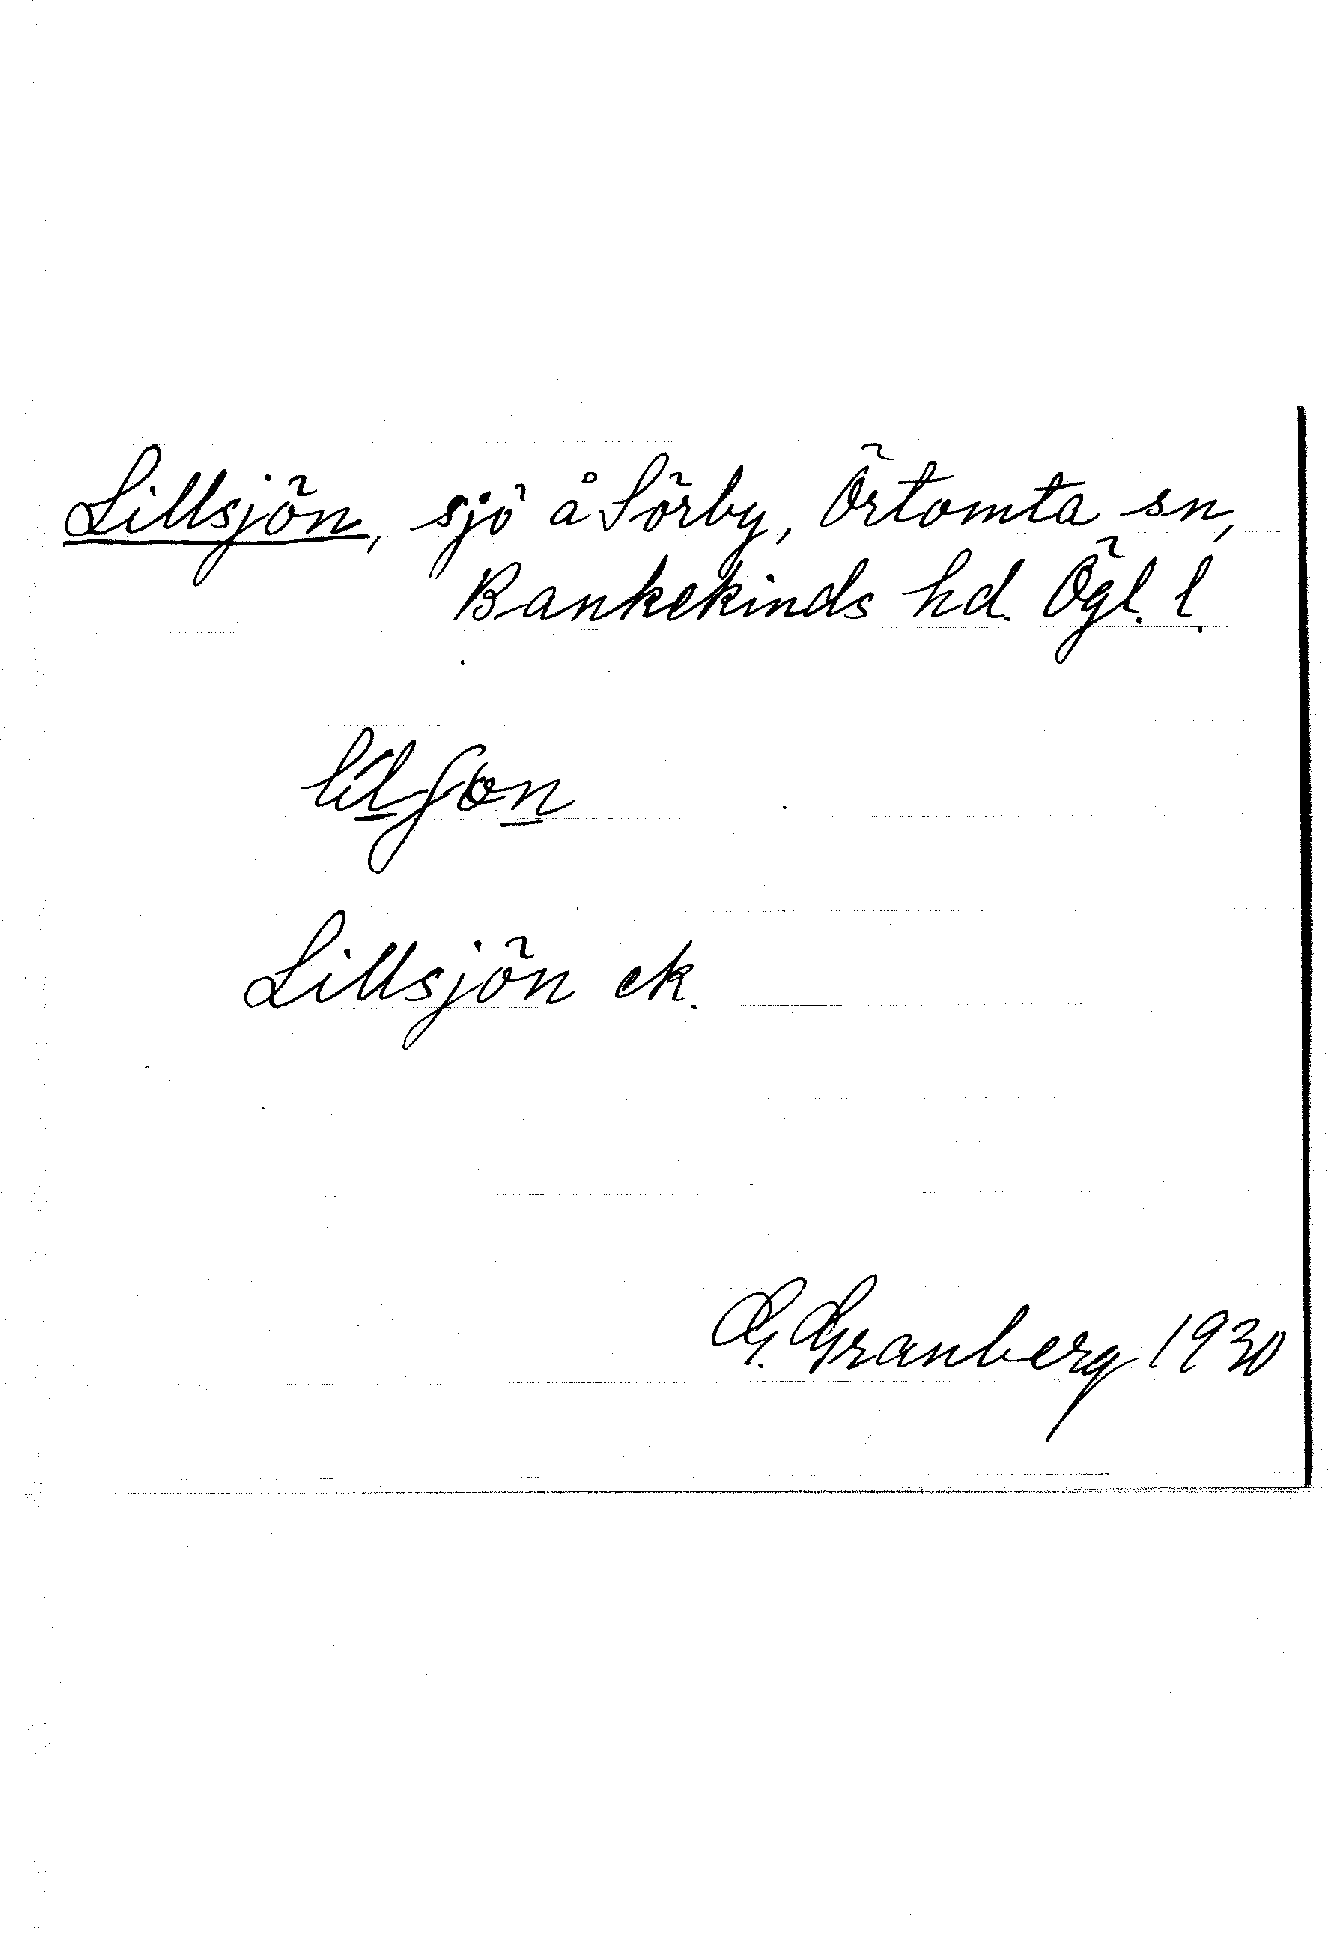 Lillsjön, sjö å Sörby, Örtomta sn,
Bankekinds hd. Ögl. l.
Lillsjön ek.
G. Granberg 1930